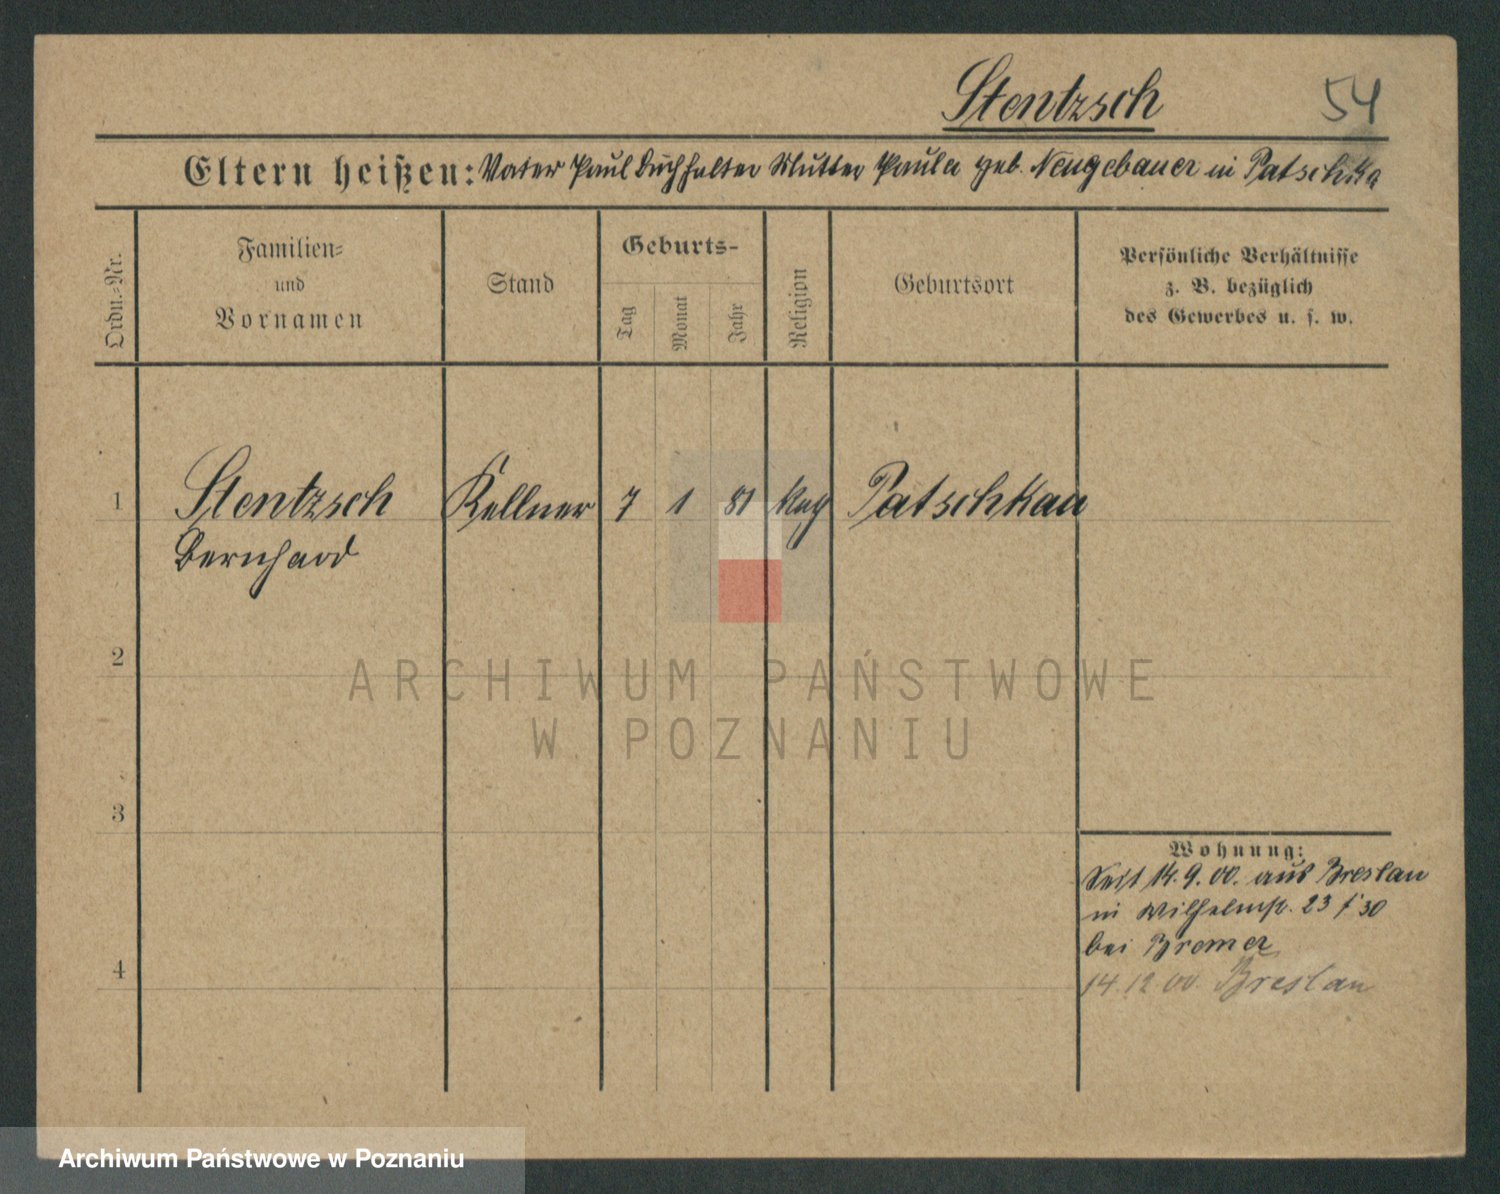 Stentzsch
54
Eltern heißen: Vater Paul Buchhalter Mutter Paula geb. Neugebauer in Patschka
Ordn.-Nr.
Familien-
und
Vornamen
Stand
Geburts-
Tag
Monat
Jahr
Religion
Geburtsort
Persönliche Verhältnisse
z. B. bezüglich
des Gewerbes u. s. w.
1 Stentzsch Kellner 7 1 81 Patschkau
Bernhard
2
3
4
Wohnung:
Seit 14.9.00. aus Breslau
in Wilhelmstr. 23 f 30
bei Bremer
14.12 00. Breslau
ARCHIWUM PAŃSTWOWE
W POZNANIU
Archiwum Państwowe w Poznaniu